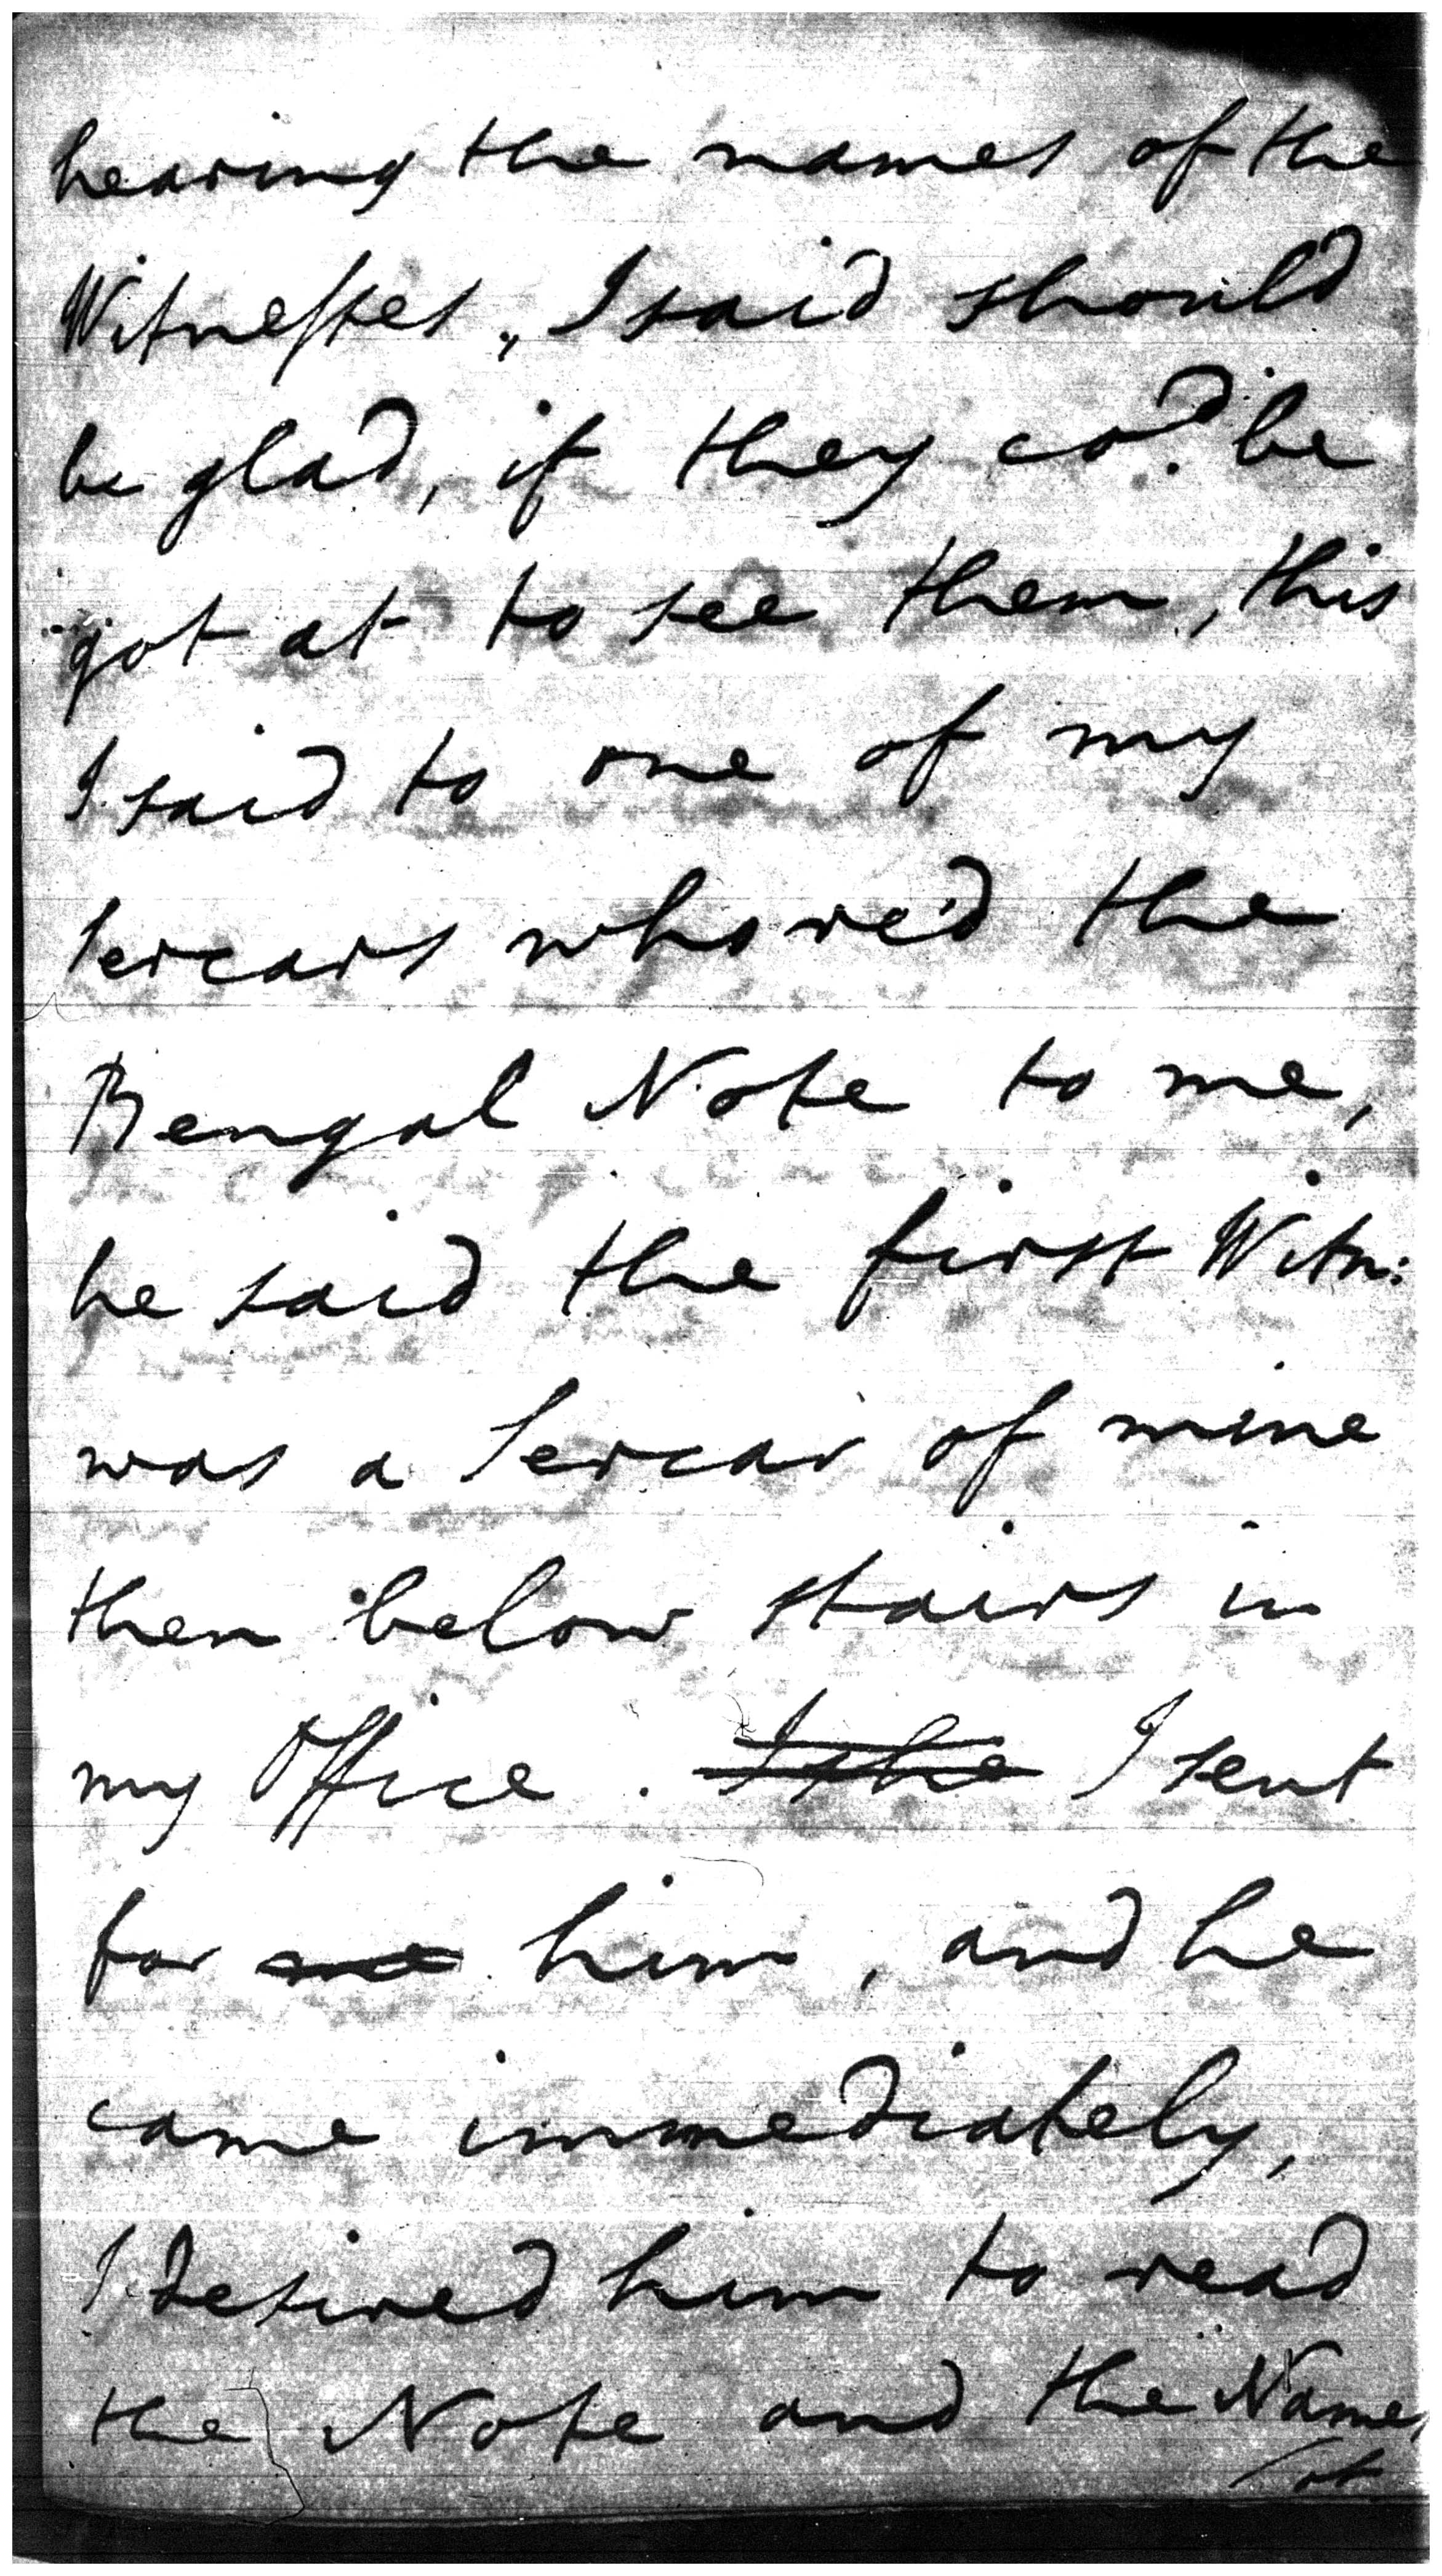 hearing the names of the
Witnesses, I said should
be glad, if they cod. be
got at to see them, this
I said to one of my
Sercars who red the
Bengal Note to me,
he said the first Witn:
was a Sercar of mine
then below stairs in
my Office. I sent
for him, and he
came immediately,
I desired him to read
the Note and the Names
/of